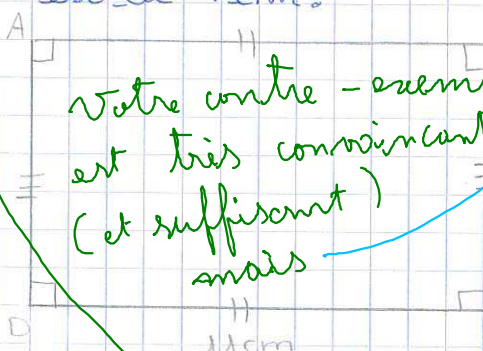 A
Votre contre-exem
est très convaincant
(et suffisant)
mais
D
11cm